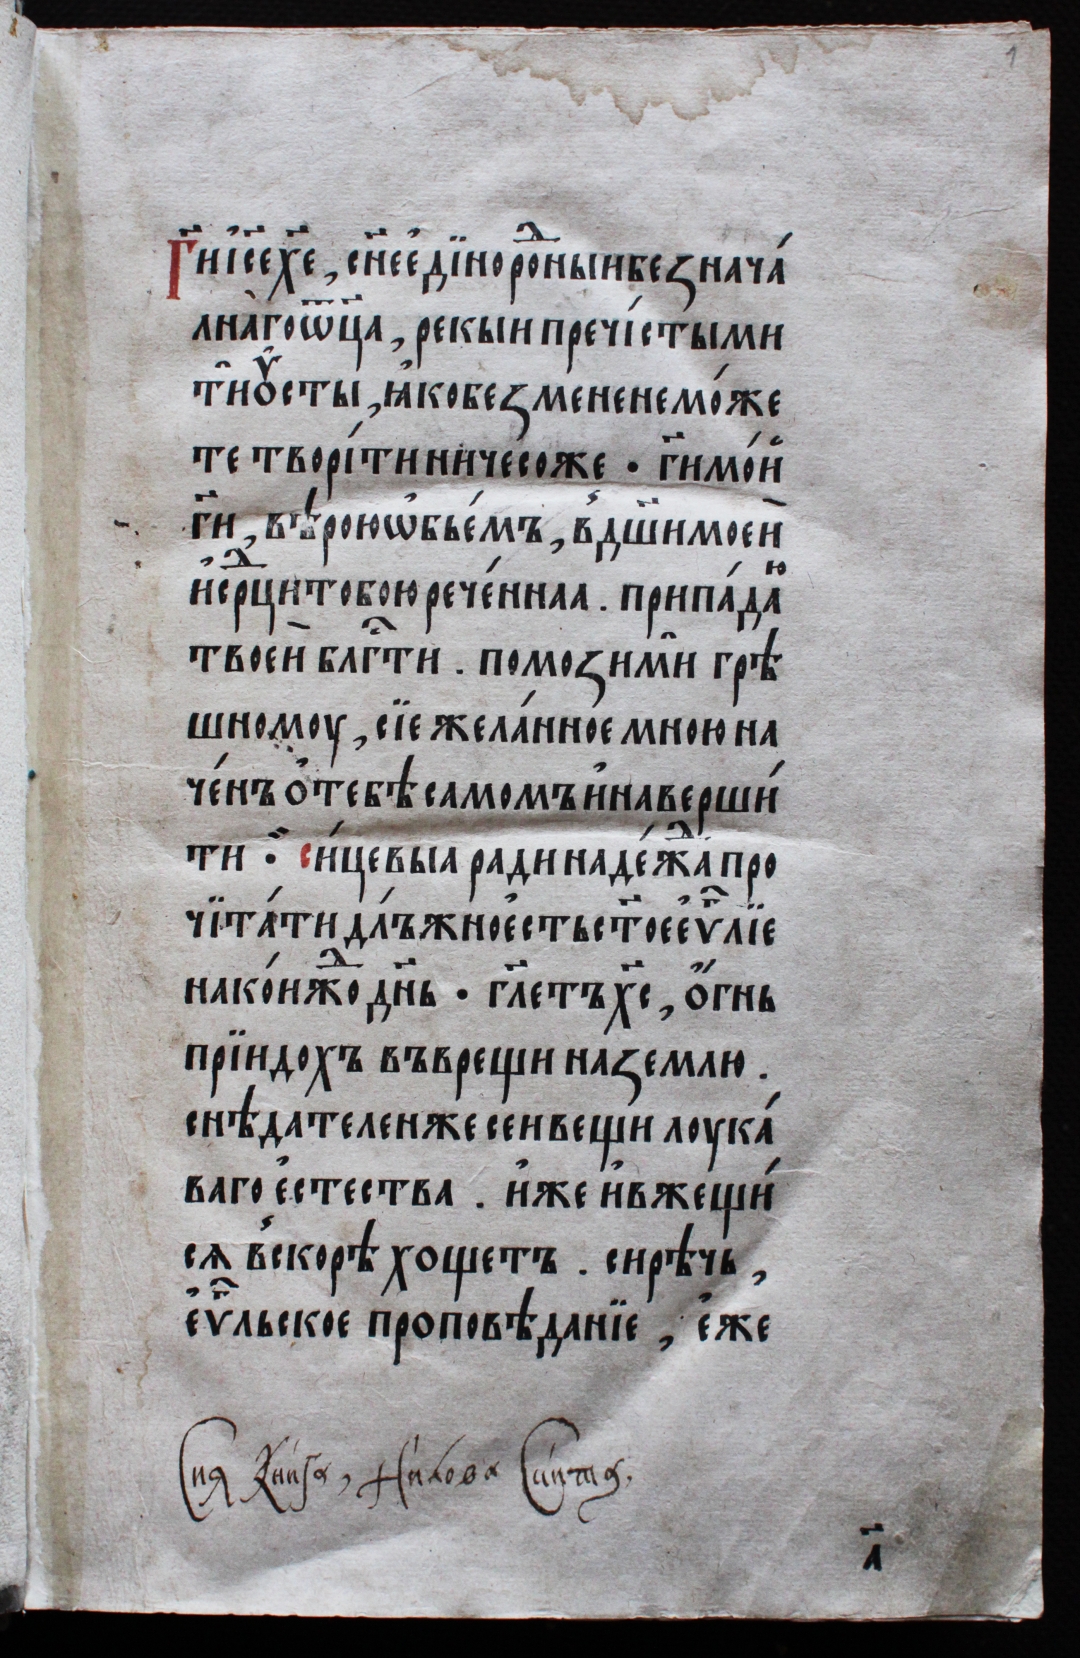 1
Г҃и і҆с҃е х҃е, сн҃е є҆дїноро́ⷣныи безнача́
лнаго ѿц҃а, рекыи пречі́стыми
ти̑ оу҆сты, ꙗ҆ко без мене не мо́же
те творі́ти ничесоже · г҃и мо́й
г҃и, вѣ́рою ѡ҆бье́мъ, в дш҃и моей
и҆ ср҃ⷣци тобою рече́ннаа . припа́даю
твоей бл҃гⷣти . помози ми̑ грѣ
шномоу, сїе жела́нное мною на
че́нъ ѻ҆ тебѣ самомъ и҆ наверши́
ти · си́цевыа ради наде́жⷣа про
чїта́ти дл́ъжно є҆сть ст҃ое є҆ѵⷢ҇лїе
на ко́нжⷣо дн҃ь · гл҃етъ х҃с, ѻ҆́гнь
прїидохъ въврещи на землю .
снѣдателен же сеи вещи лоука́
ваго є҆стества . и҆же и҆ вжещи́
сѧ вскорѣ хощетъ . сирѣчь,
є҆ѵⷢ҇льское проповѣданїе, є҆же
Сия Книга,
а҃